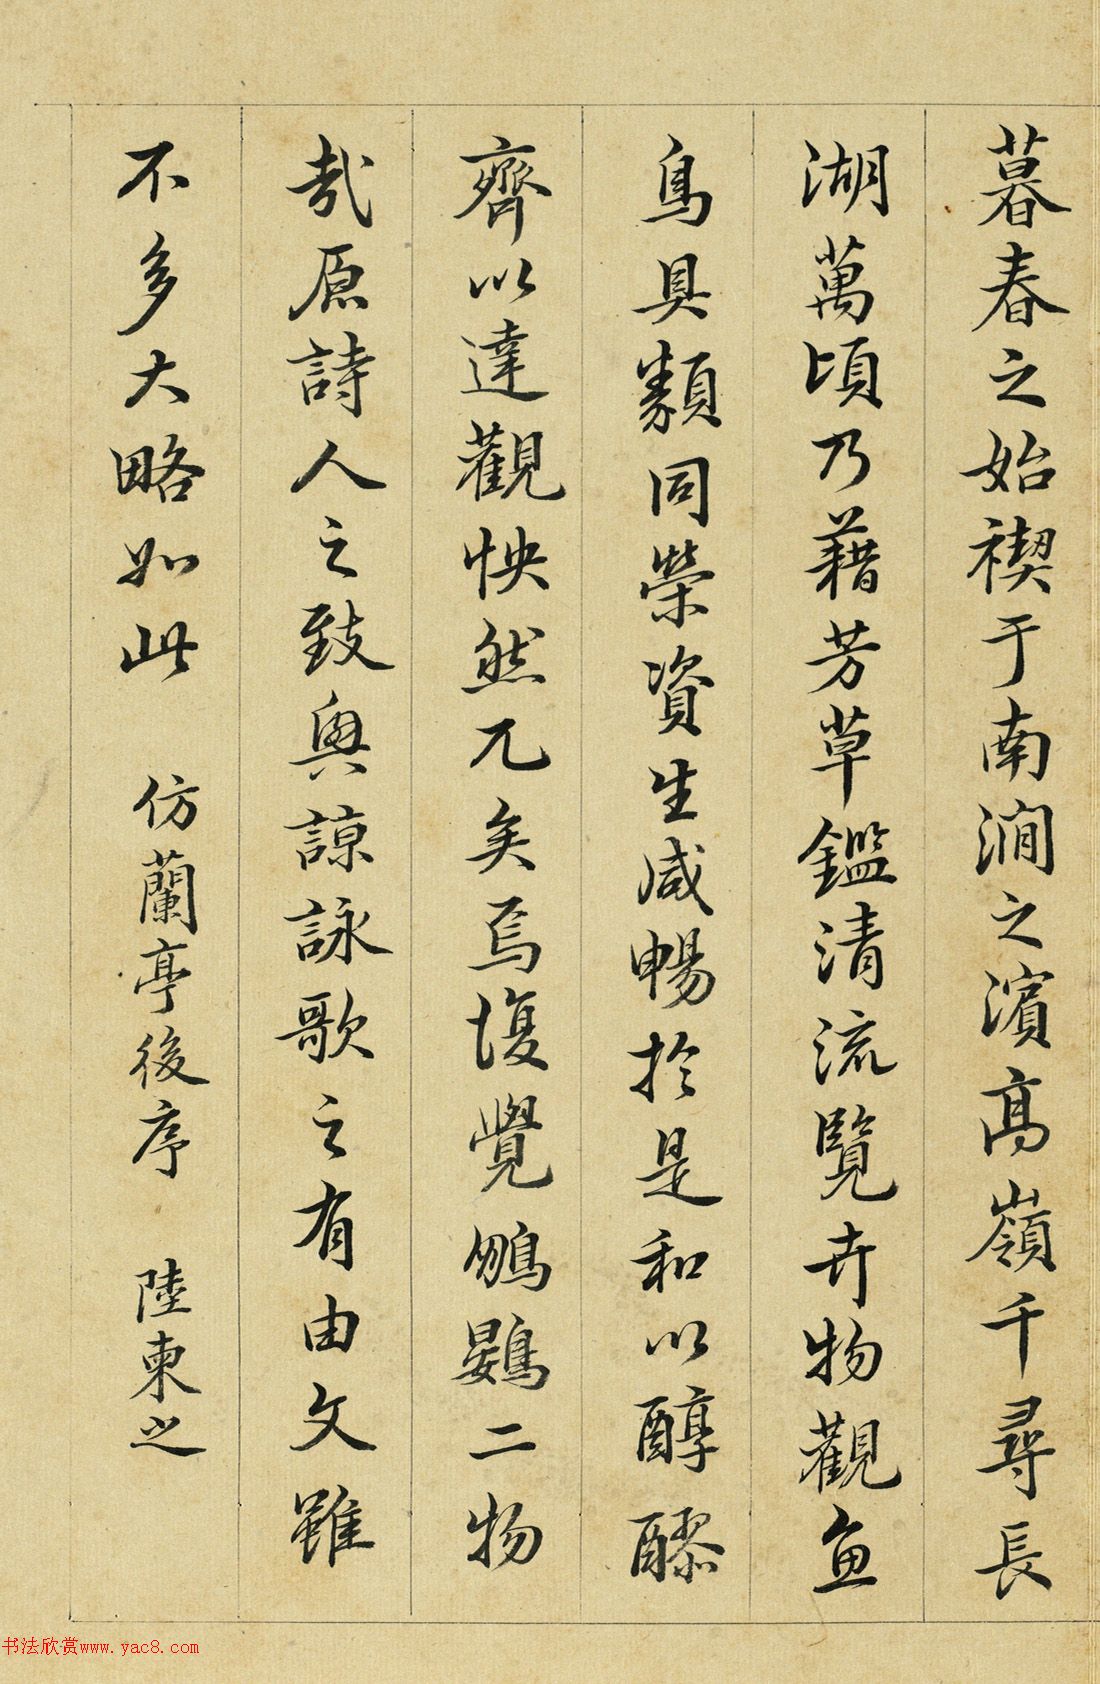 暮春之始禊于南澗之濱高嶺千尋長
湖萬頃乃藉芳草鑑清流覽卉物觀魚
鳥具類同榮資生咸暢於是和以醇醪
齊以達觀怏然兀矣焉復覺鵬鷃二物
哉原詩人之致興諒詠歌之有由文雖
不多大略如此 仿蘭亭後序 陸柬之
书法欣赏www.yac8.com